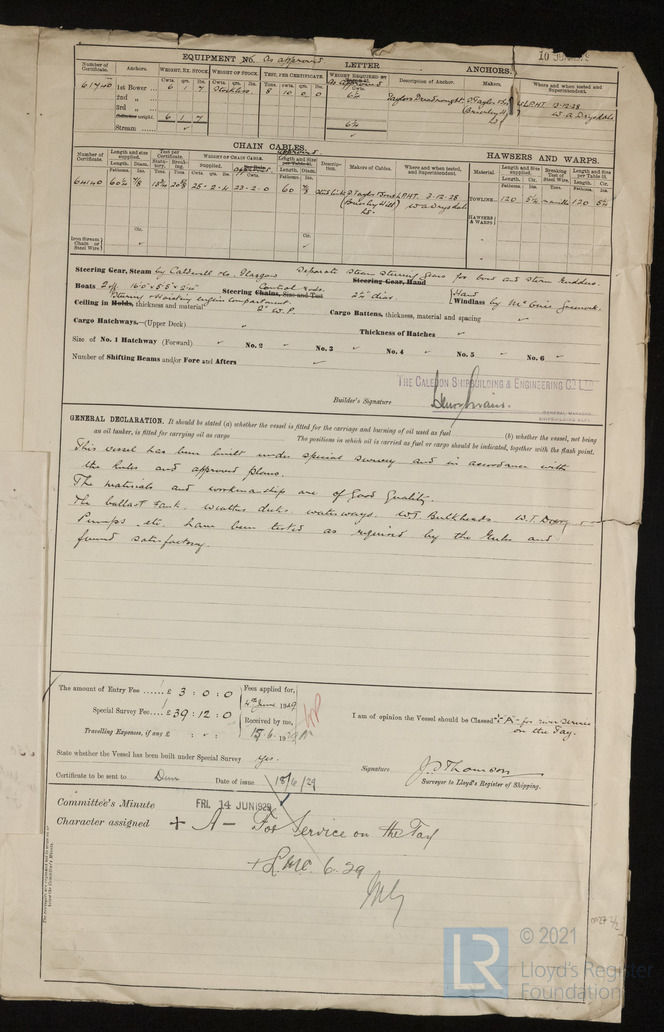 10 JUN
EQUIPMENT No. As approved LETTER ANCHORS.
Number of Certificate. Anchors. WEIGHT, EX. STOCK. WEIGHT OF STOCK. TEST, PER CERTIFICATE. WEIGHT REQUIRED BY Description of Anchor. Makers. Where and when tested and Superintendent.
Cwts. qrs. lbs. Cwts. qrs. lbs. Tons. cwts. qrs. lbs. Cwts.
61740 1st Bower 6 1 7 Stockless 8 10 0 0 6¼ Taylors Dreadnought LPHT. 3-12-28
2nd " W. A. Drysdale
3rd "
Collective weight. 6 1 7 6¼
Stream ✓ ✓
CHAIN CABLES. HAWSERS AND WARPS.
Number of Certificate. Length and size supplied. Test per Certificate. WEIGHT OF CHAIN CABLE. Length and Size per Table 31. Description. Makers of Cables. Where and when tested, and Superintendent. Material. Length and size supplied. Breaking Test of Steel Wire. Length and size per Table 31.
Length. Diam. Statutory. Breaking. Supplied. Length. Diam. Length. Cir. Length. Cir.
Fathoms. Ins. Tons. Tons. Cwts. qrs. lbs. Cwts. Fathoms. Ins. Fathoms. Ins. Tons. Fathoms. Ins.
64140 60¼ 25-2-4 23-2-0 60 Stud Link LPHT. 3-12-28 TOWLINE 120 5½ manilla 120 5½
(Brierley Hill) W A Drysdale
Ld.
HAWSERS & WARPS
Iron Stream Chain or Steel Wire Cir. ✓ Cir. ✓
Steering Gear, Steam by Caldwell & Co. Glasgow Separate steam steering gears for bow and stern rudders. Steering Gear, Hand
Boats 2 off 16'0" x 5'5" x Steering Chains, Size and Test Control rods. 2¼ dias. Windlass Hand by McGuire Greenock.
Steering & Hoisting engine compartment.
Ceiling in Holds, thickness and material 2" W.P. Cargo Battens, thickness, material and spacing ✓
Cargo Hatchways.—(Upper Deck) ✓ Thickness of Hatches ✓
Size of No. 1 Hatchway (Forward) ✓ No. 2 ✓ No. 3 ✓ No. 4 ✓ No. 5 ✓ No. 6 ✓
Number of Shifting Beams and/or Fore and Afters ✓
THE CALEDON SHIPBUILDING & ENGINEERING CO. LTD.
Builder's Signature
GENERAL MANAGER
SHIPBUILDING DEPT.
GENERAL DECLARATION. It should be stated (a) whether the vessel is fitted for the carriage and burning of oil used as fuel (b) whether the vessel, not being
an oil tanker, is fitted for carrying oil as cargo The positions in which oil is carried as fuel or cargo should be indicated, together with the flash point.
This vessel has been built under special survey and in accordance with
the Rules and approved plans.
The materials and workmanship are of Good Quality.
The ballast tank, weather decks, waterways, WT Bulkheads, W.T. Doors,
Pumps, etc. have been tested as required by the Rules and
found satisfactory.
The amount of Entry Fee £ 3 : 0 : 0 Fees applied for,
4th June 1929
Special Survey Fee £ 39 : 12 : 0 Received by me,
Travelling Expenses, if any £ : :
I am of opinion the Vessel should be Classed + A - for river service
on the Tay.
State whether the Vessel has been built under Special Survey Yes.
Certificate to be sent to Dun Date of issue 18/6/29
Signature
Surveyor to Lloyd's Register of Shipping.
Committee's Minute FRI. 14 JUN 1929
Character assigned + A - For Service on the Tay
+ LMC 6.29
© 2021
LR
Lloyd's Register
Foundation